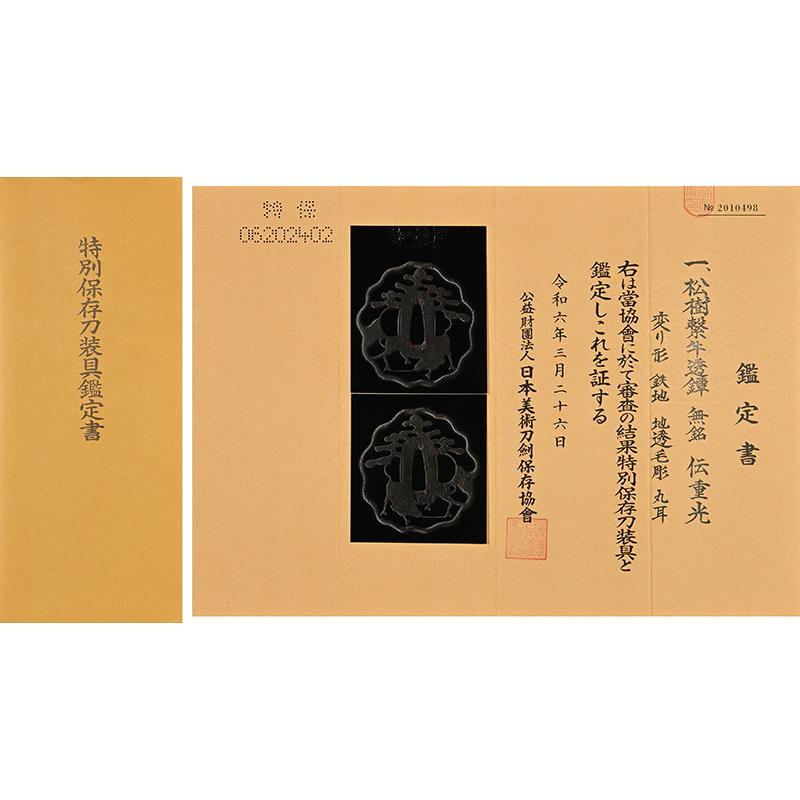 特別保存刀装具鑑定書
№ 2010498
鑑定書
一、松樹繋牛透鐔 無銘 伝重光
変り形 鉄地 地透毛彫 丸耳
右は當協會に於て審査の結果特別保存刀装具と
鑑定しこれを証する
令和六年三月二十六日
公益財團法人 日本美術刀剣保存協會
特保
06202402